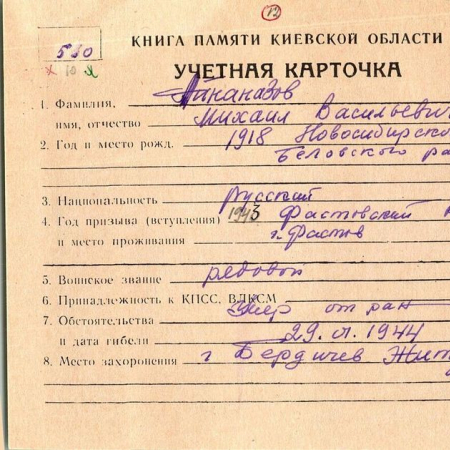 12
580
КНИГА ПАМЯТИ КИЕВСКОЙ ОБЛАСТИ
УЧЕТНАЯ КАРТОЧКА
1. Фамилия,
имя, отчество Михаил Васильевич
2. Год и место рожд. 1918 Новосибирско
Беловского ра
3. Национальность русский
4. Год призыва (вступления) 1943 Фастовский
и место проживания г. Фастов
5. Воинское звание рядовой
6. Принадлежность к КПСС, ВЛКСМ
7. Обстоятельства умер от ран
и дата гибели 29.01.1944
8. Место захоронения г Бердичев Жит